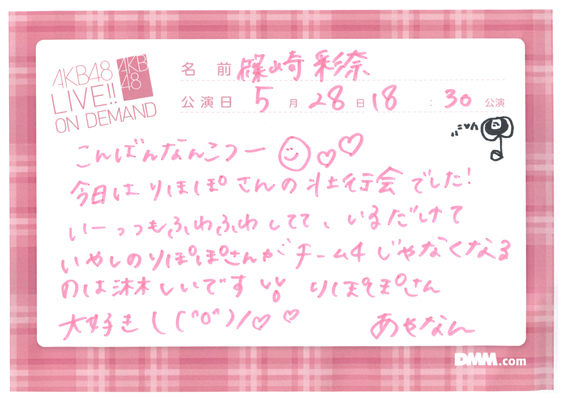 AKB48
LIVE!!
ON DEMAND
AKB
48
名前 篠崎彩奈
公演日 5月28日18:30公演
こんばんなんこつー
今日はりほぽぽさんの壮行会でした!
いーっつもふわふわしてて、いるだけで
いやしのりぽぽさんがチーム4じゃなくなる
のは淋しいです りぽぽさん
大好きし(°0°)/
あやなん
DMM.com